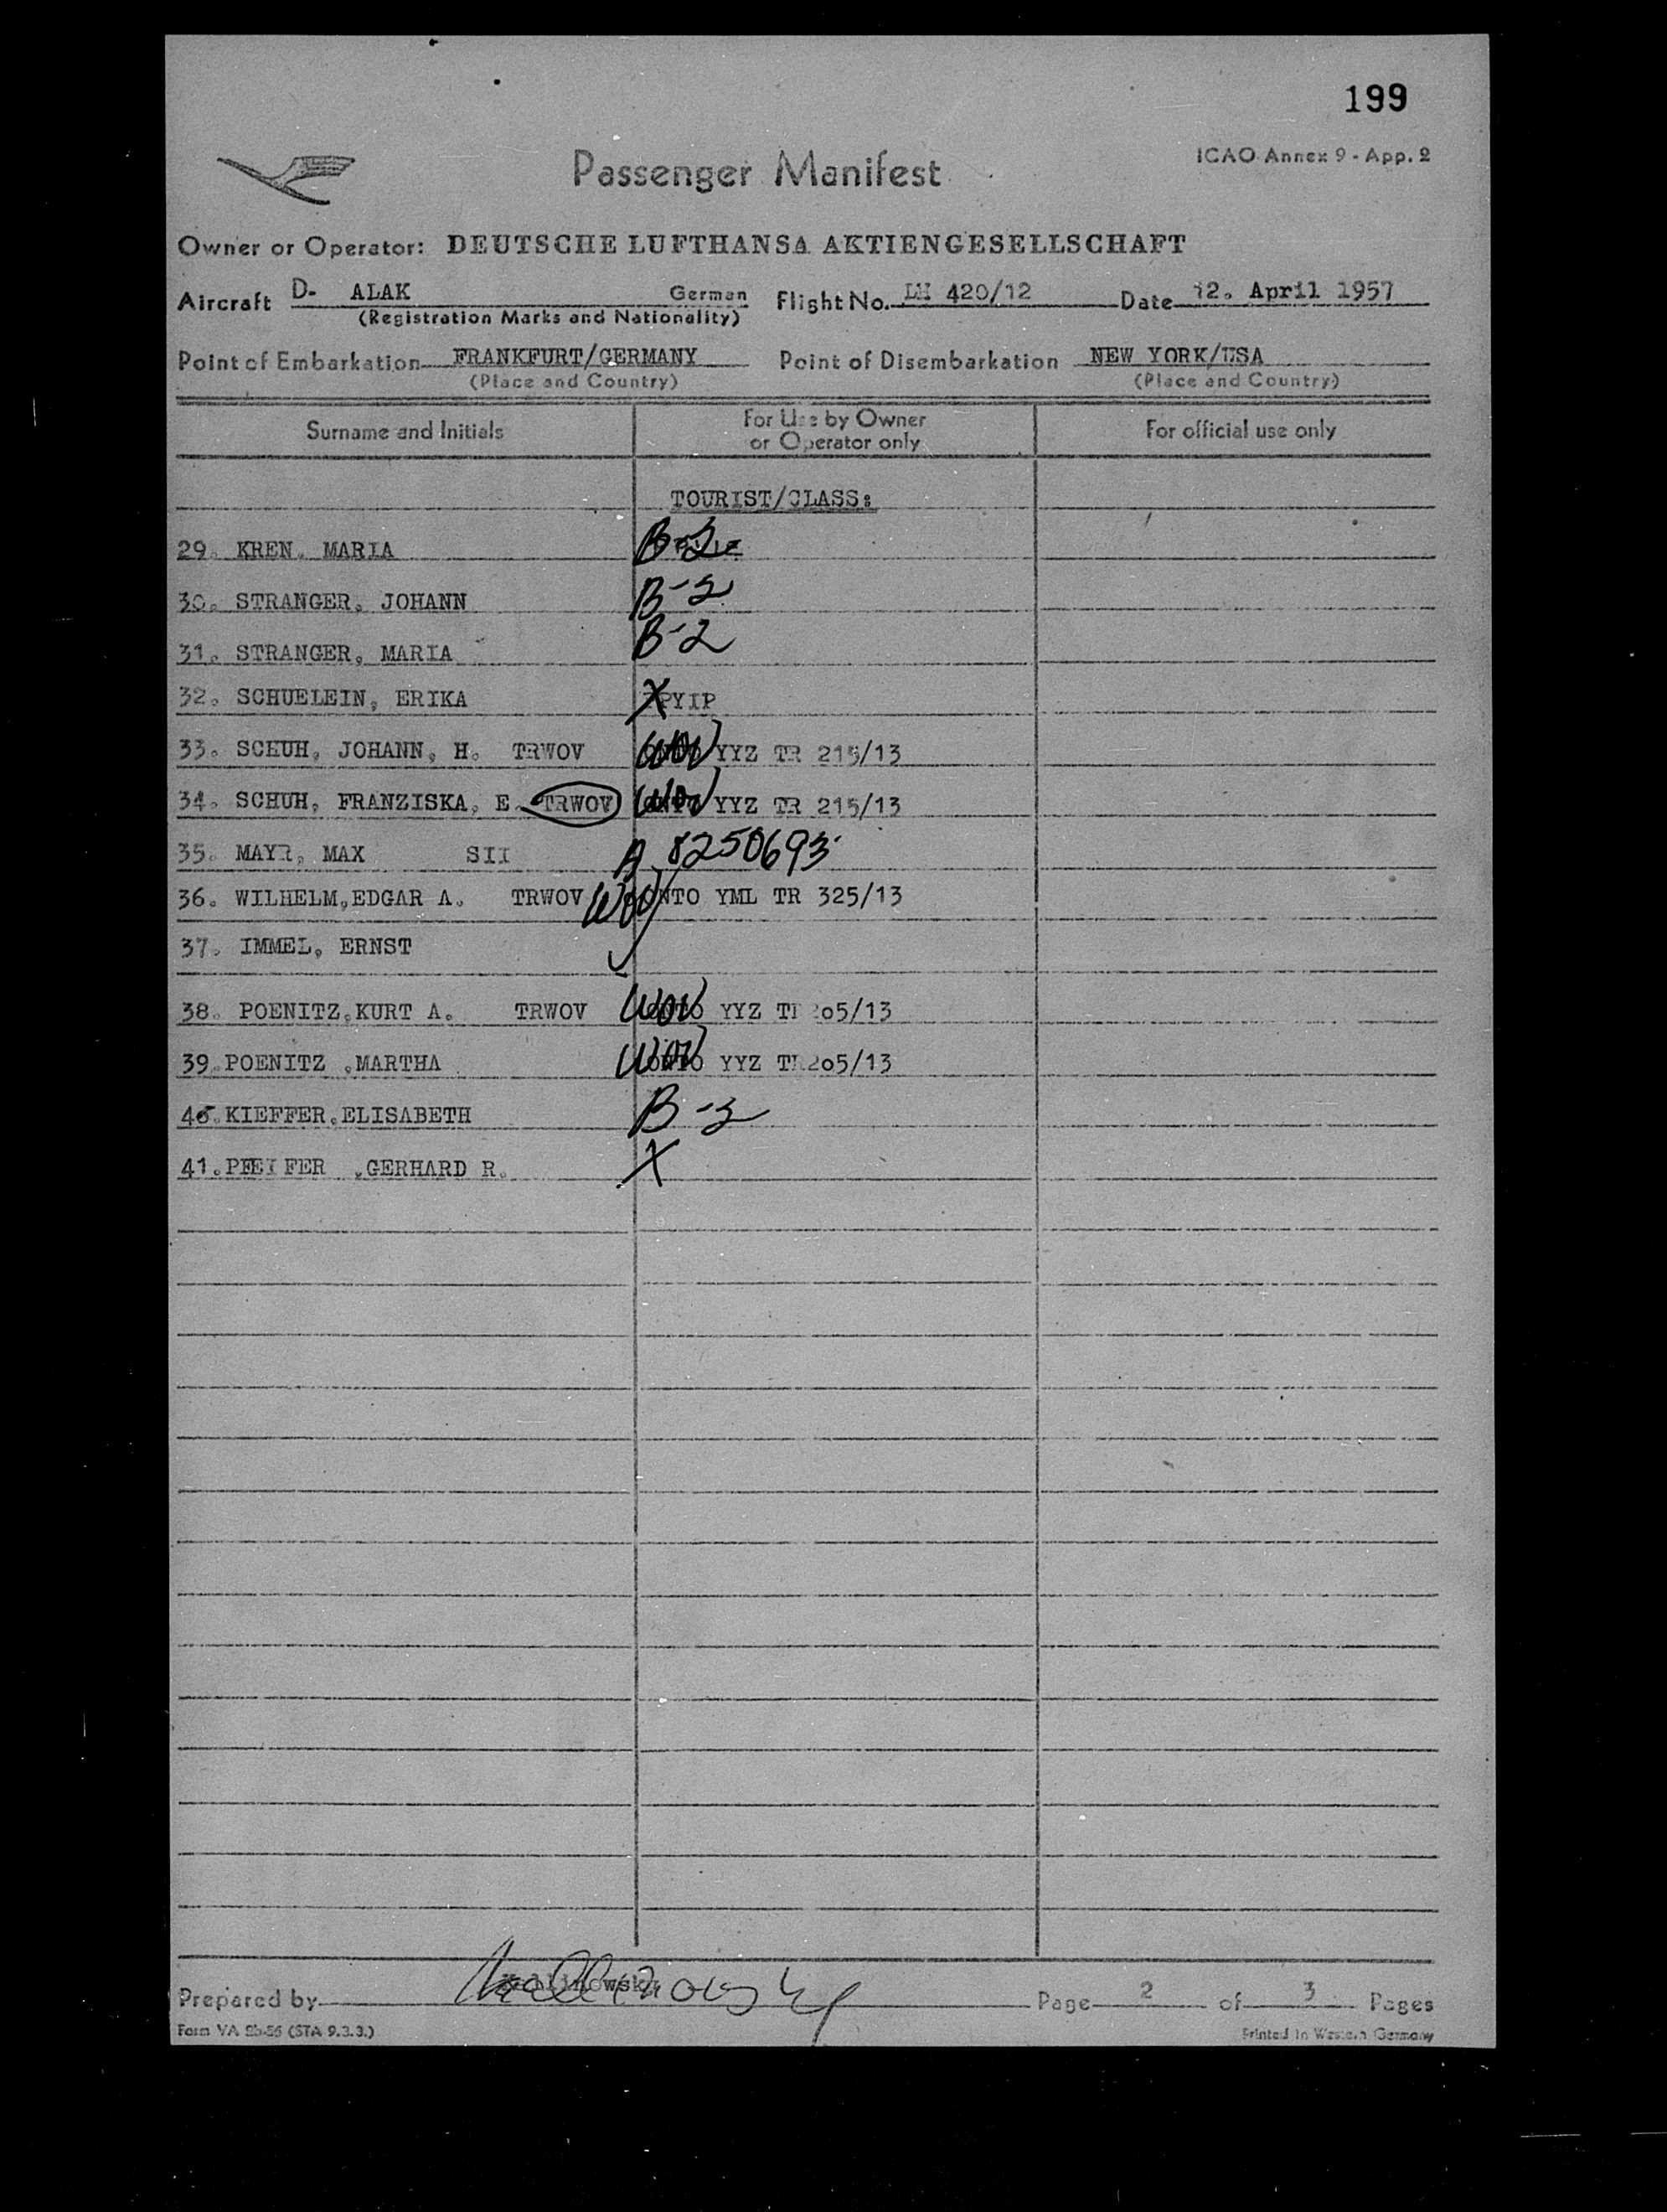 199
ICAO Annex 9 - App. 2
Passenger Manifest
Owner or Operator: DEUTSCHE LUFTHANSA AKTIENGESELLSCHAFT
Aircraft D- ALAK German Flight No. LH 420/12 Date 12. April 1957
(Registration Marks and Nationality)
Point of Embarkation FRANKFURT/GERMANY Point of Disembarkation NEW YORK/USA
(Place and Country) (Place and Country)
Surname and Initials For Use by Owner or Operator only For official use only
TOURIST/CLASS:
29. KREN, MARIA B-2
30. STRANGER, JOHANN B-2
31. STRANGER, MARIA B-2
32. SCHUELEIN, ERIKA X PYIP
33. SCHUH, JOHANN, H. TRWOV WOV YYZ TR 215/13
34. SCHUH, FRANZISKA, E. TRWOV WOV YYZ TR 215/13
35. MAYR, MAX SII A 8250693
36. WILHELM,EDGAR A. TRWOV WOV ONTO YML TR 325/13
37. IMMEL, ERNST
38. POENITZ,KURT A. TRWOV WOV YYZ TR 205/13
39.POENITZ ,MARTHA WOV YYZ TR 205/13
40.KIEFFER,ELISABETH B-2
41.PFEIFER ,GERHARD R. X
Prepared by Kallinowsky Page 2 of 3 Pages
Form VA 2b-56 (STA 9.3.3.) Printed in Western Germany